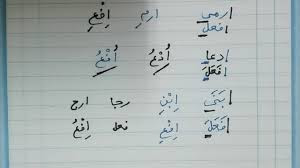 ارمى ارمِ اِفْعِ
افعل
ادعا اُدْعُ اُفْعُ
افَعَلَ
بَنَى اِبْنِ رجا ارج
فَعَلَ اِفْعِ فعل اِفْعُ